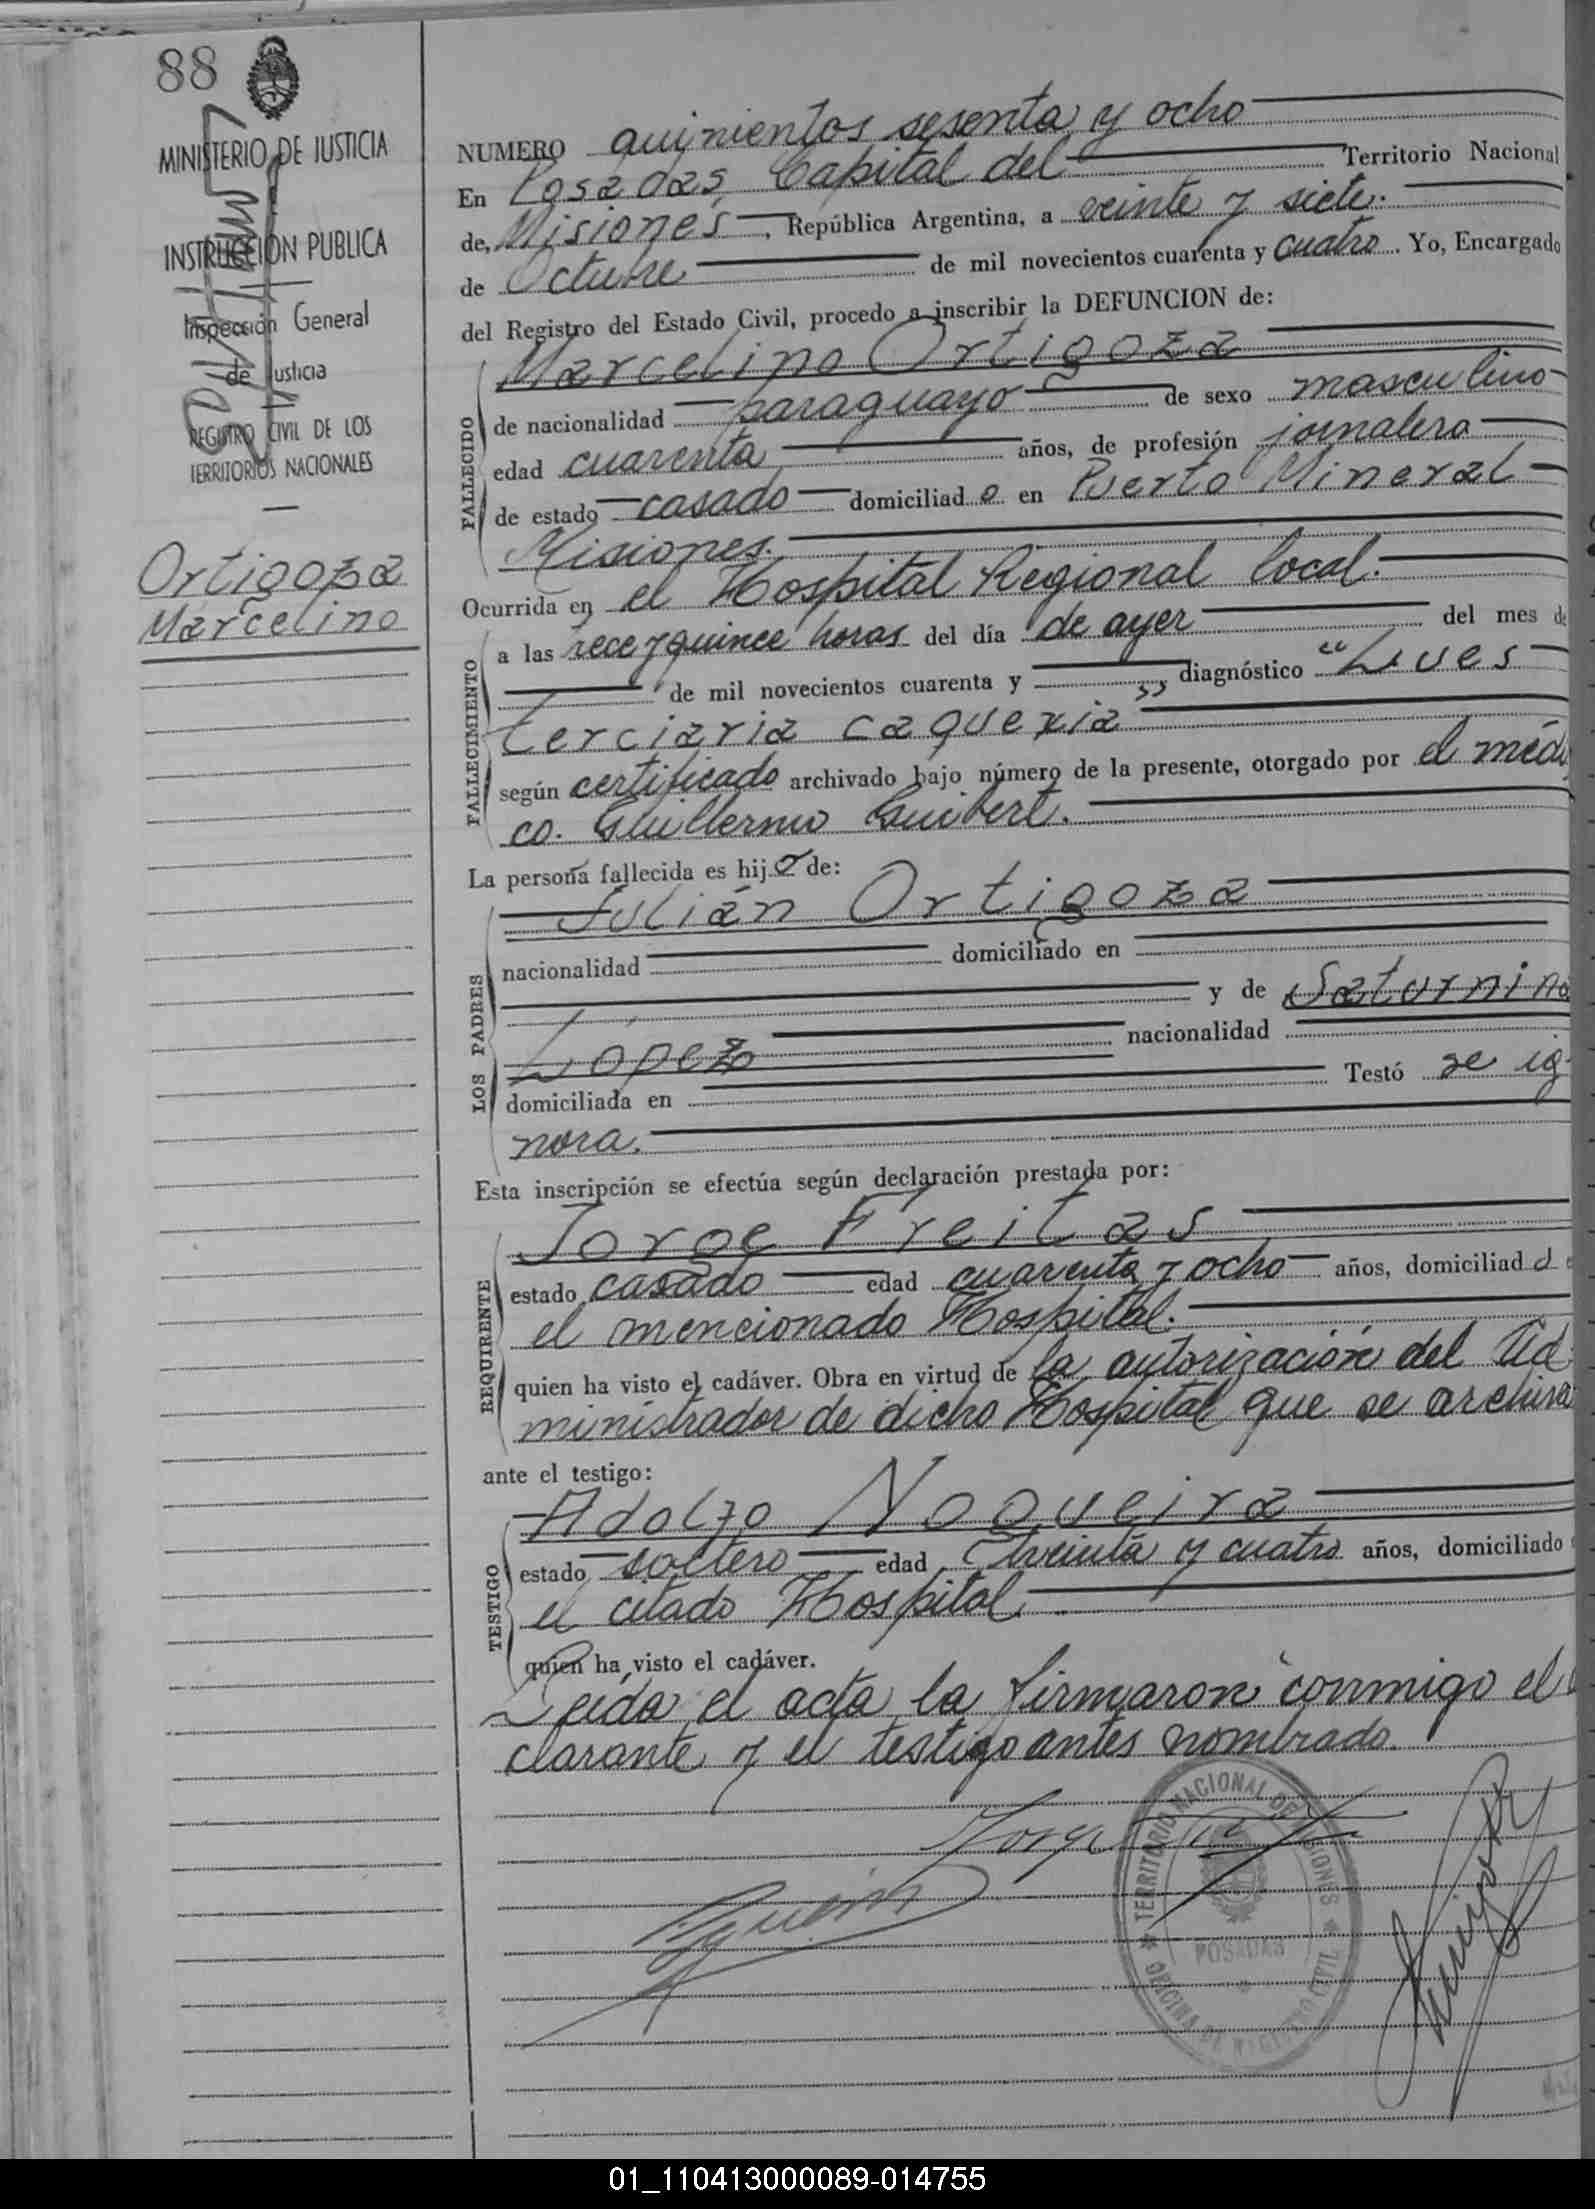 88
MINISTERIO DE JUSTICIA
INSTRUCCIÓN PUBLICA
Inspección General
de Justicia
REGISTRO CIVIL DE LOS
TERRITORIOS NACIONALES
Ortigoza
Marcelino
NUMERO quinientos sesenta y ocho
En Posadas Capital del Territorio Nacional
de, Misiones, República Argentina, a veinte y siete.
de Octubre de mil novecientos cuarenta y cuatro. Yo, Encargado
del Registro del Estado Civil, procedo a inscribir la DEFUNCION de:
FALLECIDO
Marcelino Ortigoza
de nacionalidad paraguayo de sexo masculino
edad cuarenta años, de profesión jornalero
de estado casado domiciliado en Puerto Mineral
Misiones.
Ocurrida en el Hospital Regional local.
FALLECIMIENTO
a las trece y quince horas del día de ayer del mes de
de mil novecientos cuarenta y diagnóstico "Lues
terciaria caquexia"
según certificado archivado bajo número de la presente, otorgado por el médi
co. Guillermo Guibert.
La persona fallecida es hijo de:
LOS PADRES
Julián Ortigoza
nacionalidad domiciliado en
y de Saturnina
López nacionalidad
domiciliada en Testó se ig
nora.
Esta inscripción se efectúa según declaración prestada por:
REQUIRENTE
Jorge Freitas
estado casado edad cuarenta y ocho años, domiciliad
el mencionado Hospital.
quien ha visto el cadáver. Obra en virtud de la autorización del Ad
ministrador de dicho Hospital que se archiva
ante el testigo:
TESTIGO
Adolfo Nogueira
estado soltero edad treinta y cuatro años, domiciliado
el citado Hospital.
quien ha visto el cadáver.
Leída el acta, la firmaron conmigo el
clarante y el testigo antes nombrado.
TERRITORIO NACIONAL DE MISIONES
POSADAS
OFICINA DE REGISTRO CIVIL
01_110413000089-014755